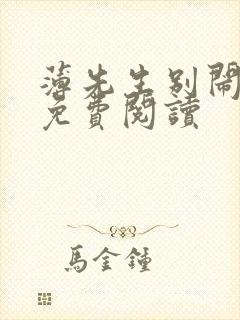 薄先生别鬧
免費閱讀
馬金鐘